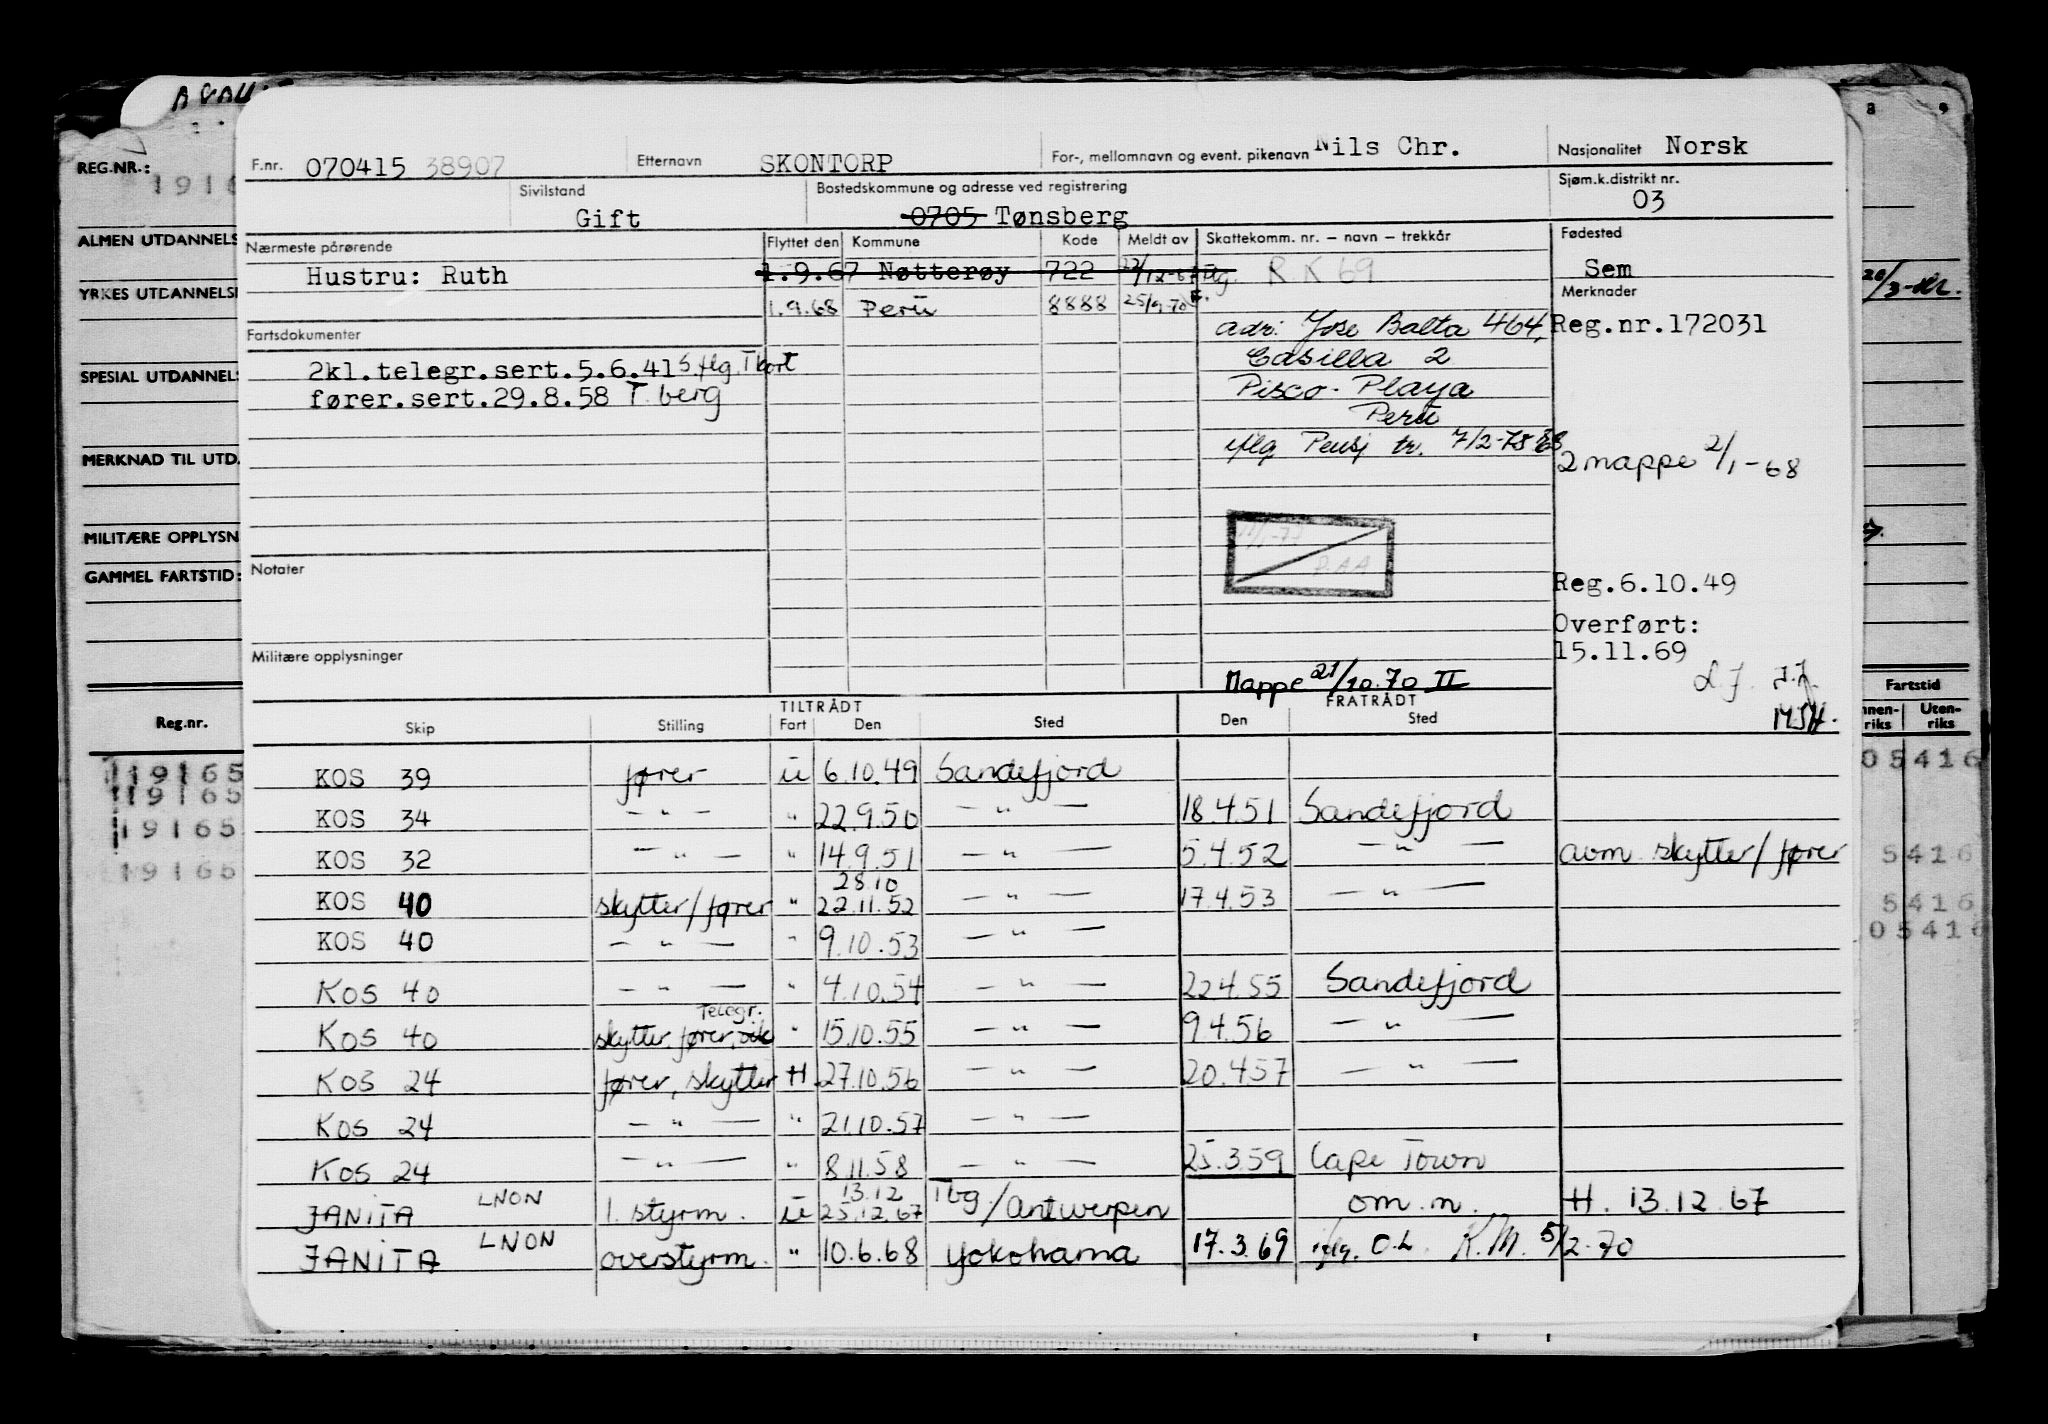 REG.NR.:
1916
ALMEN UTDANNELS
YRKES UTDANNELS
SPESIAL UTDANNELS
MERKNAD TIL UTD.
MILITÆRE OPPLYSN
GAMMEL FARTSTID:
Reg.nr.
119165
119165
119165
19165
F.nr. 070415 38907 Etternavn SKONTORP For-, mellomnavn og event. pikenavn Nils Chr. Nasjonalitet Norsk
Sivilstand Gift Bostedskommune og adresse ved registrering 0705 Tønsberg Sjøm.k.distrikt nr. 03
Nærmeste pårørende Flyttet den Kommune Kode Meldt av Skattekomm. nr. – navn – trekkår Fødested
Hustru: Ruth 1.9.67 Nøtterøy 722 R.K 69 Sem
Merknader
1.9.68 Peru 8888 25/9-70
Fartsdokumenter adr: Jose Balta 464, Reg.nr.172031
2kl.telegr.sert.5.6.41 Casilla 2
fører.sert.29.8.58 T.berg Pisco-Playa
Peru
iflg Pensj tr. 7/2-75
2 mappe 2/1-68
Notater Reg.6.10.49
Overført:
Militære opplysninger 15.11.69
Mappe 21/10.70 II
TILTRÅDT FRATRÅDT
Skip Stilling Fart Den Sted Den Sted
KOS 39 fører u 6.10.49 Sandefjord
KOS 34 — " — " 22.9.50 — " — 18.4.51 Sandefjord
KOS 32 — " — " 14.9.51 — " — 5.4.52 — " — avm skytter/fører
28.10
KOS 40 skytter/fører " 22.11.52 — " — 17.4.53 — " —
KOS 40 — " — " 9.10.53 — " —
KOS 40 — " — " 4.10.54 — " — 22.4.55 Sandefjord
Telegr.
KOS 40 skytter, fører, " 15.10.55 — " — 9.4.56 — " —
KOS 24 fører, skytter H 27.10.56 — " — 20.4.57 — " —
KOS 24 — " — " 21.10.57 — " —
KOS 24 — " — " 8.11.58 — " — 25.3.59 Cape Town
13.12
JANITA LNON 1. styrm. u 25.12.67 Tbg/Antwerpen om.m. H. 13.12.67
JANITA LNON overstyrm. " 10.6.68 Yokohama 17.3.69 iflg. O.L. K.M. 5/2-70
8 9
Fartstid
Innen-riks Uten-riks
05416
5416
5416
05416